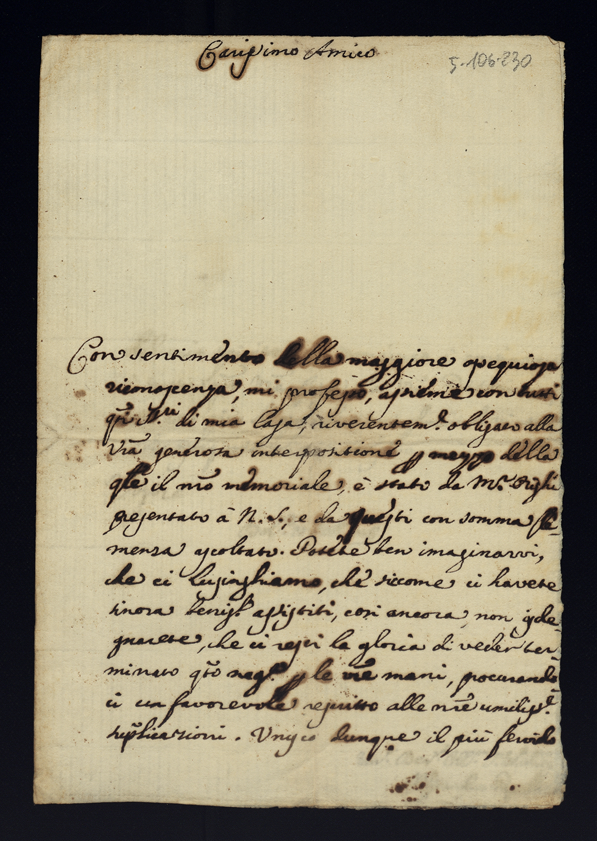 Carissimo Amico
5-106-230
Con sentimento della maggiore ossequiosa
riconoscenza, mi professo, assieme con tutti
qti ss.ri di mia Casa, riverentem.e obligato alla
Vra generosa interpositione p mezzo della
qle il nro memoriale, è stato da Mr.
presentato à N. S., e da questi con somma cle-
menza ascoltato. Potete ben imaginarvi,
che ci lusinghiamo, che siccome ci havete
sinora benig.e assistiti, così ancora, non isde-
gnarete, che ci resti la gloria di veder ter-
minato qto neg.o p le vre mani, procurando
ci un favorevole rescritto alle nre umiliss.e
supplicazioni. Unisco dunque il più fervido